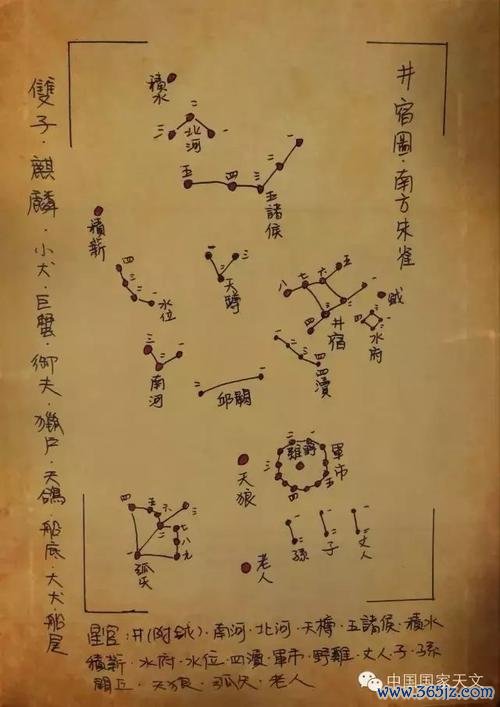 井宿圖·南方朱雀
雙子·麒麟·小犬·巨蟹·御夫·獵戶·天鴿·船底·大犬船尾
積水
三 二 一
北河
五 四 三 二 一
五諸侯
積薪
四 三 二 一
水位
一 二 三
天罇
八 七 六 五
四 三 二 一
井宿
鉞
四 三 二 一
水府
三 二 一
南河
二 一
闕邱
一 二 三 四
四瀆
天狼
野雞
軍市
一 二 三 四 五
四 五 六 二 三
一 七 八 九
弧矢
老人
二 一
孫
二 一
子
二 一
丈人
星官:井(附鉞)·南河·北河·天樽·五諸侯·積水
積薪·水府·水位·四瀆·軍市·野雞·丈人·子·孫
闕丘·天狼·弧矢·老人
中国国家天文
www.365jz.com